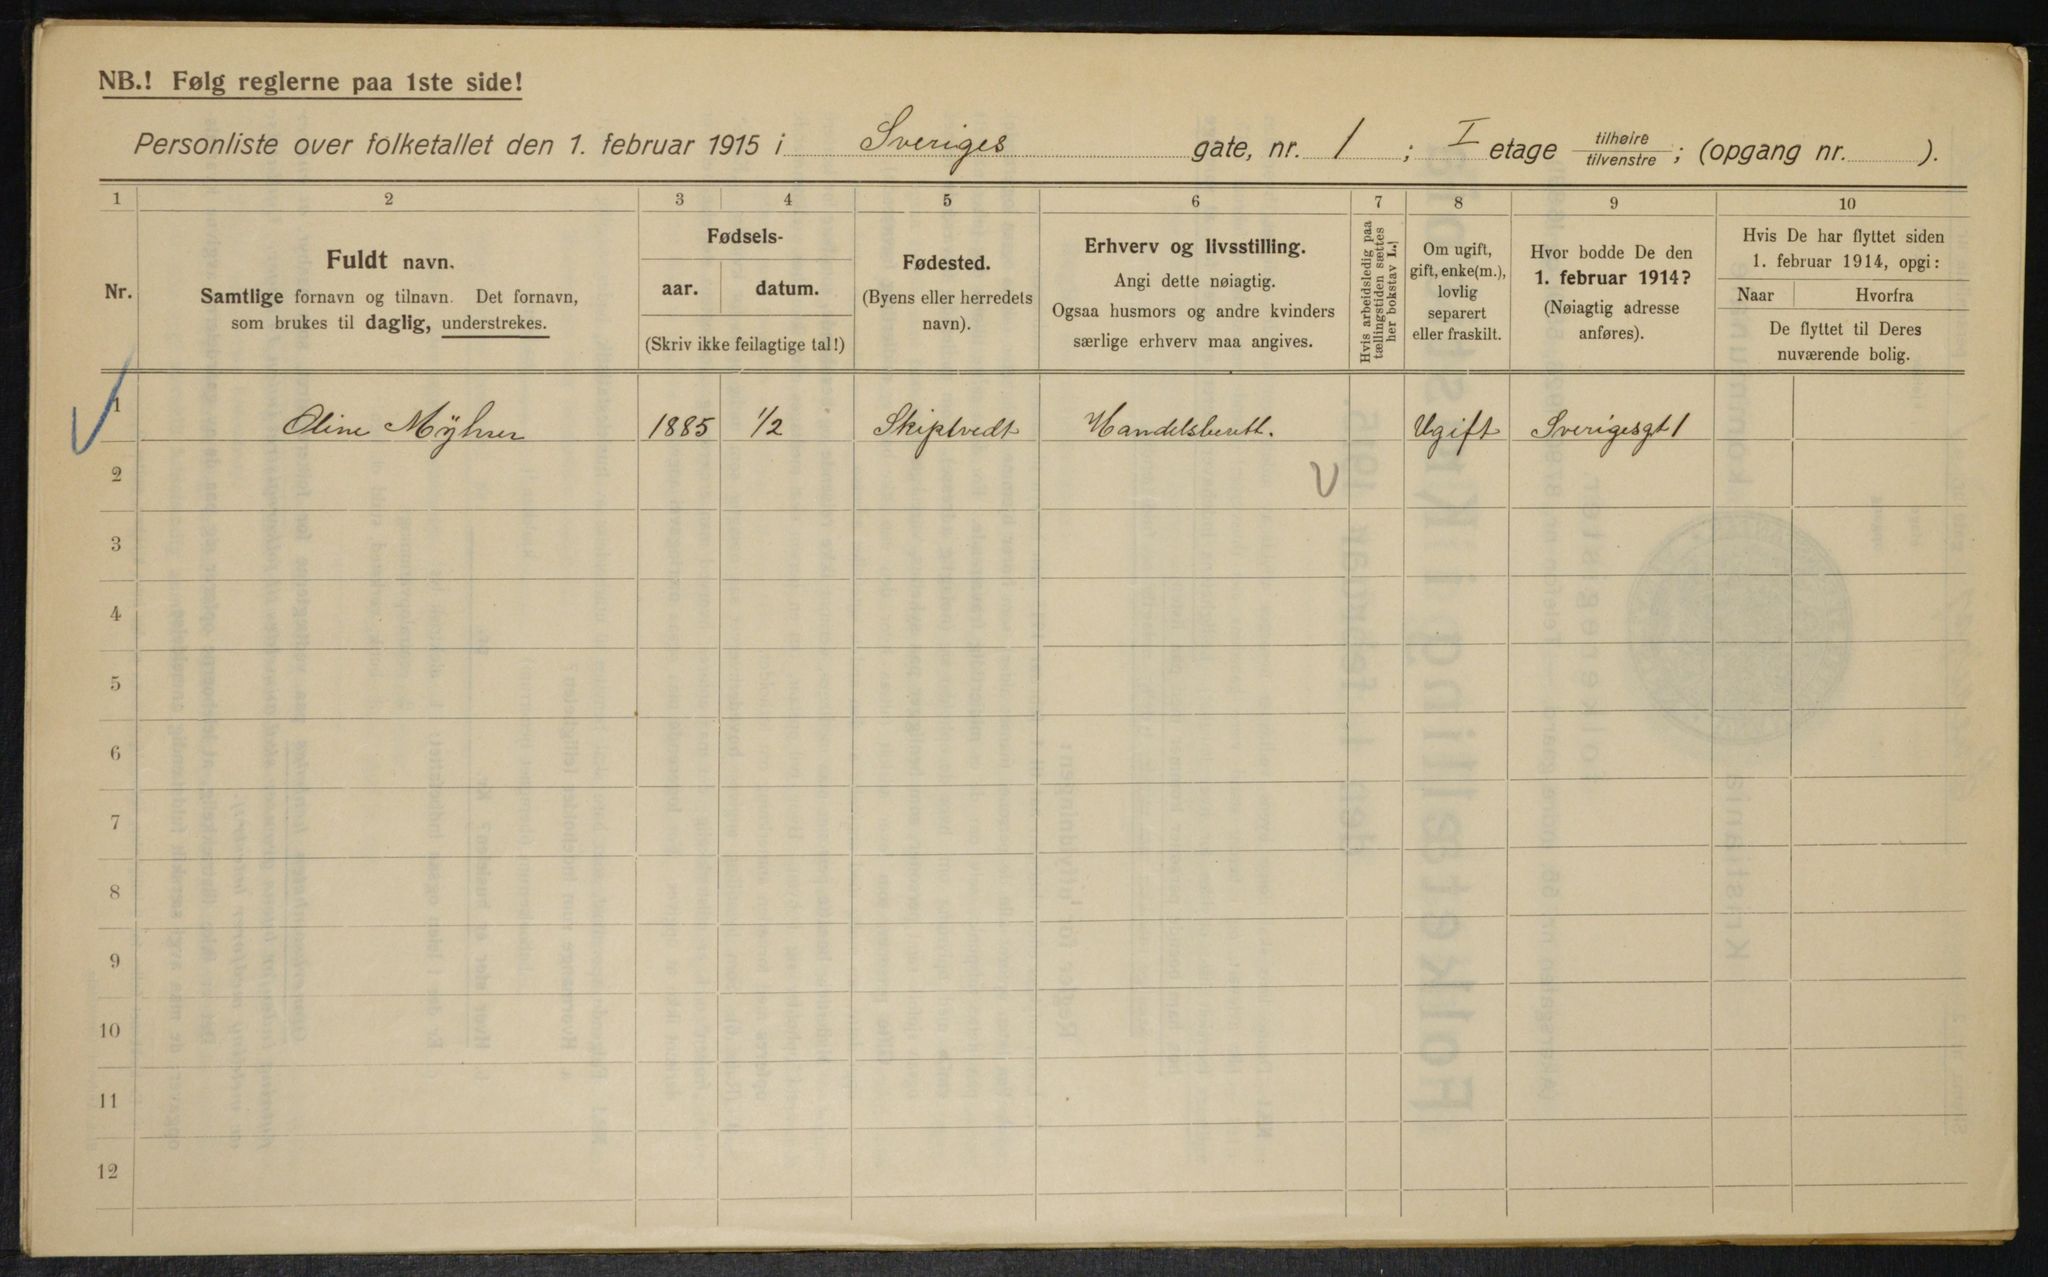 NB.! Følg reglerne paa 1ste side!
Personliste over folketallet den 1. februar 1915 i Sveriges gate, nr. 1 ; I etage tilhøire tilvenstre ; (opgang nr. ).
1 2 3 4 5 6 7 8 9 10
Nr.
Fuldt navn.
Samtlige fornavn og tilnavn. Det fornavn,
som brukes til daglig, understrekes.
Fødsels-
aar. datum.
(Skriv ikke feilagtige tal!)
Fødested.
(Byens eller herredets
navn).
Erhverv og livsstilling.
Angi dette nøiagtig.
Ogsaa husmors og andre kvinders
særlige erhverv maa angives.
Hvis arbeidsledig paa
tællingstiden sættes
her bokstav L.
Om ugift,
gift, enke(m.),
lovlig
separert
eller fraskilt.
Hvor bodde De den
1. februar 1914?
(Nøiagtig adresse
anføres).
Hvis De har flyttet siden
1. februar 1914, opgi:
Naar Hvorfra
De flyttet til Deres
nuværende bolig.
1 Oline Mÿhrer 1885 1/2 Skiptvedt Handelsberett. Ugift Sverigesgt 1
2
3
4
5
6
7
8
9
10
11
12